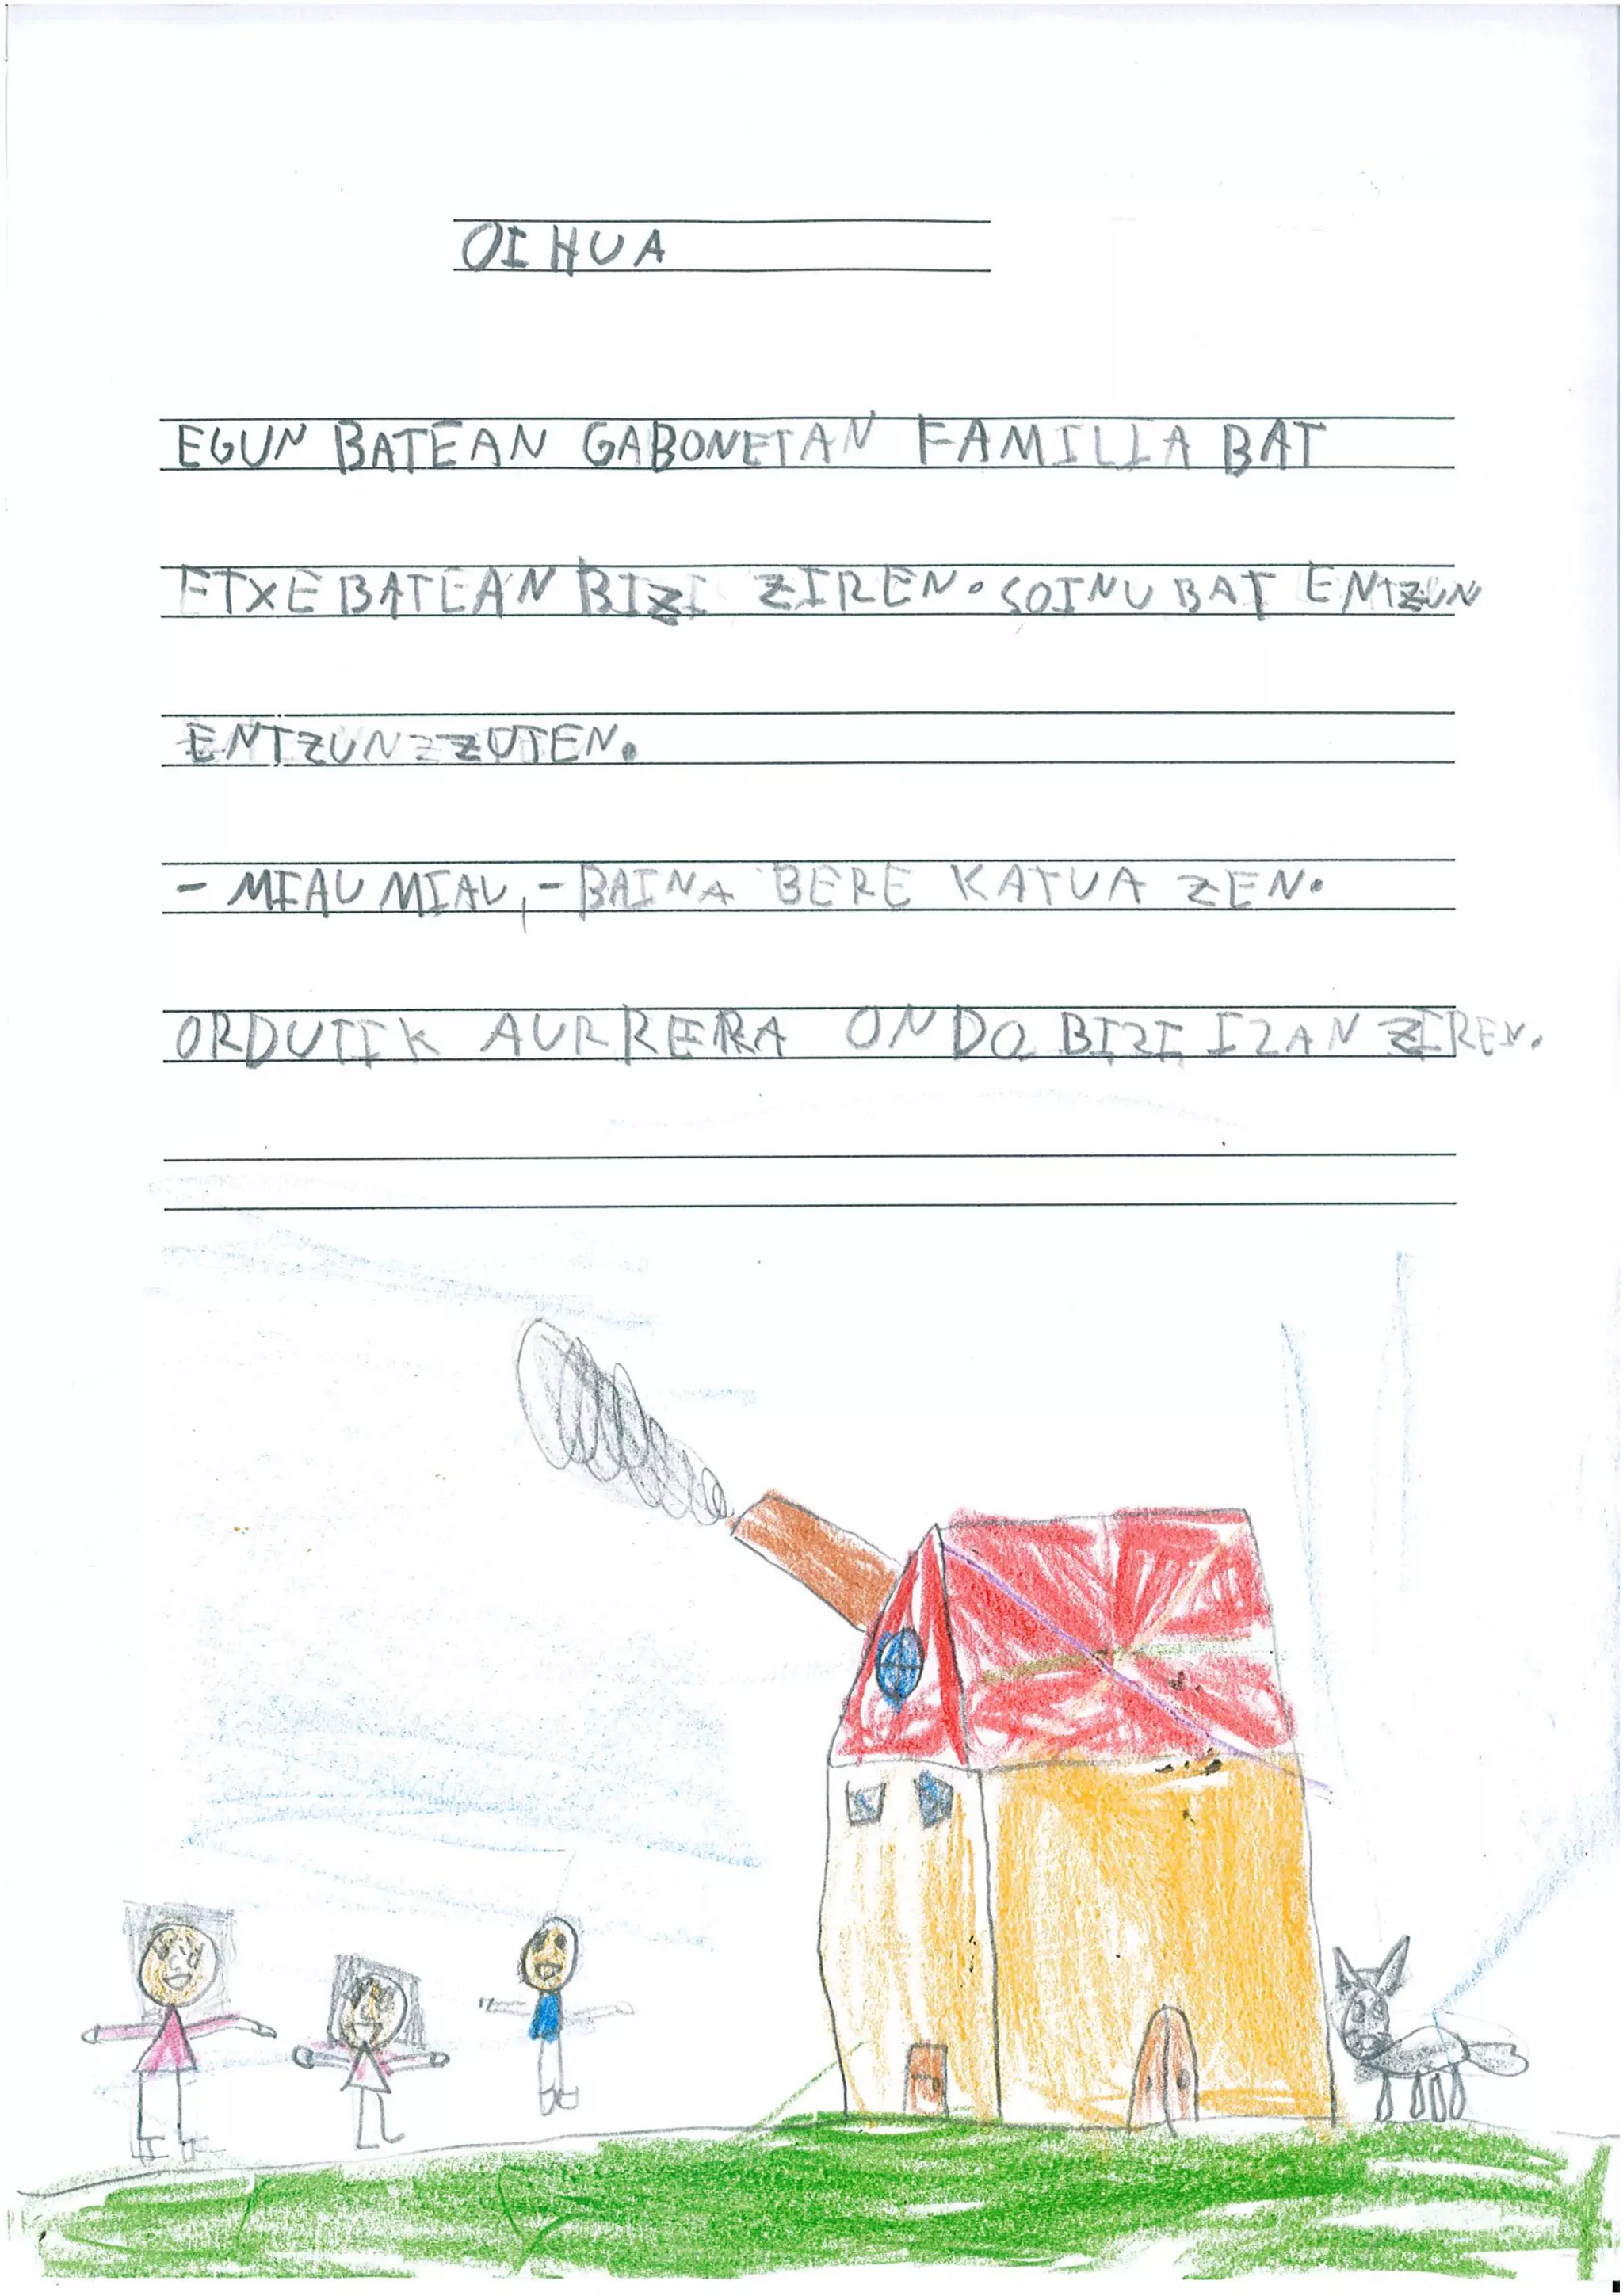 OIHUA
EGUN BATEAN GABONETAN FAMILIA BAT
ETXE BATEAN BIZI ZIREN. SOINU BAT ENTZUN
ENTZUN ZZUTEN.
- MIAU MIAU, - BAINA BERE KATUA ZEN.
ORDUTIK AURRERRA ONDO BIZI IZAN ZIREN.